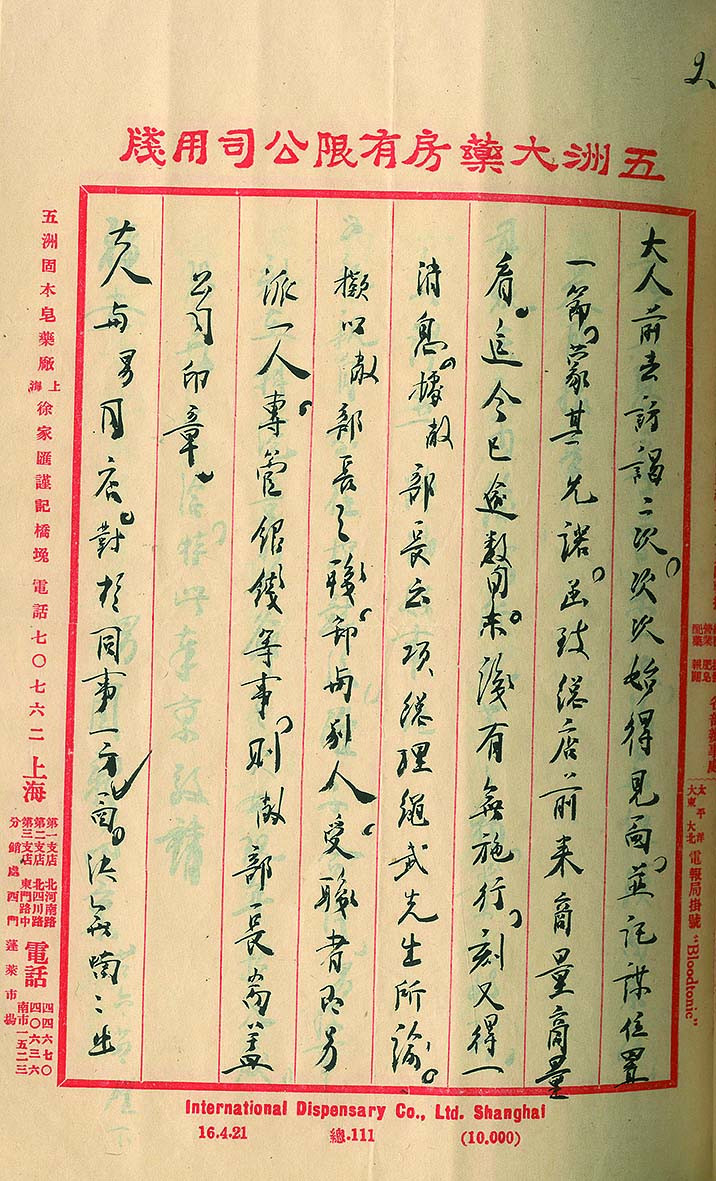 2
五洲大藥房有限公司用牋
大東 太平洋 大北 電報局掛號 "Bloodtonic"
大人前去訪謁二次。次次始得見面。並託謀位置
一節。蒙其允諾。函致總店前來商量商量
看。迄今已逾數日。未識有無施行。刻又得一
消息。據敝部長云項總理繩武先生所論。
擬以敝部長之職。卸與別人。受職者另
派一人。專管銀錢等事。則敝部長蓋
公司印章。
大人與男同店。對於同事一方面。決無出
五洲固本皂藥廠 上海 徐家匯謹記橋堍 電話七〇七六二
上海
第一支店 北河南路
第二支店 北四川路
第三支店 東門路中
分銷處 西門蓬萊市場
電話
四四六七〇
四〇六三六
南市一五二三
International Dispensary Co., Ltd. Shanghai
16.4.21 總.111 (10.000)